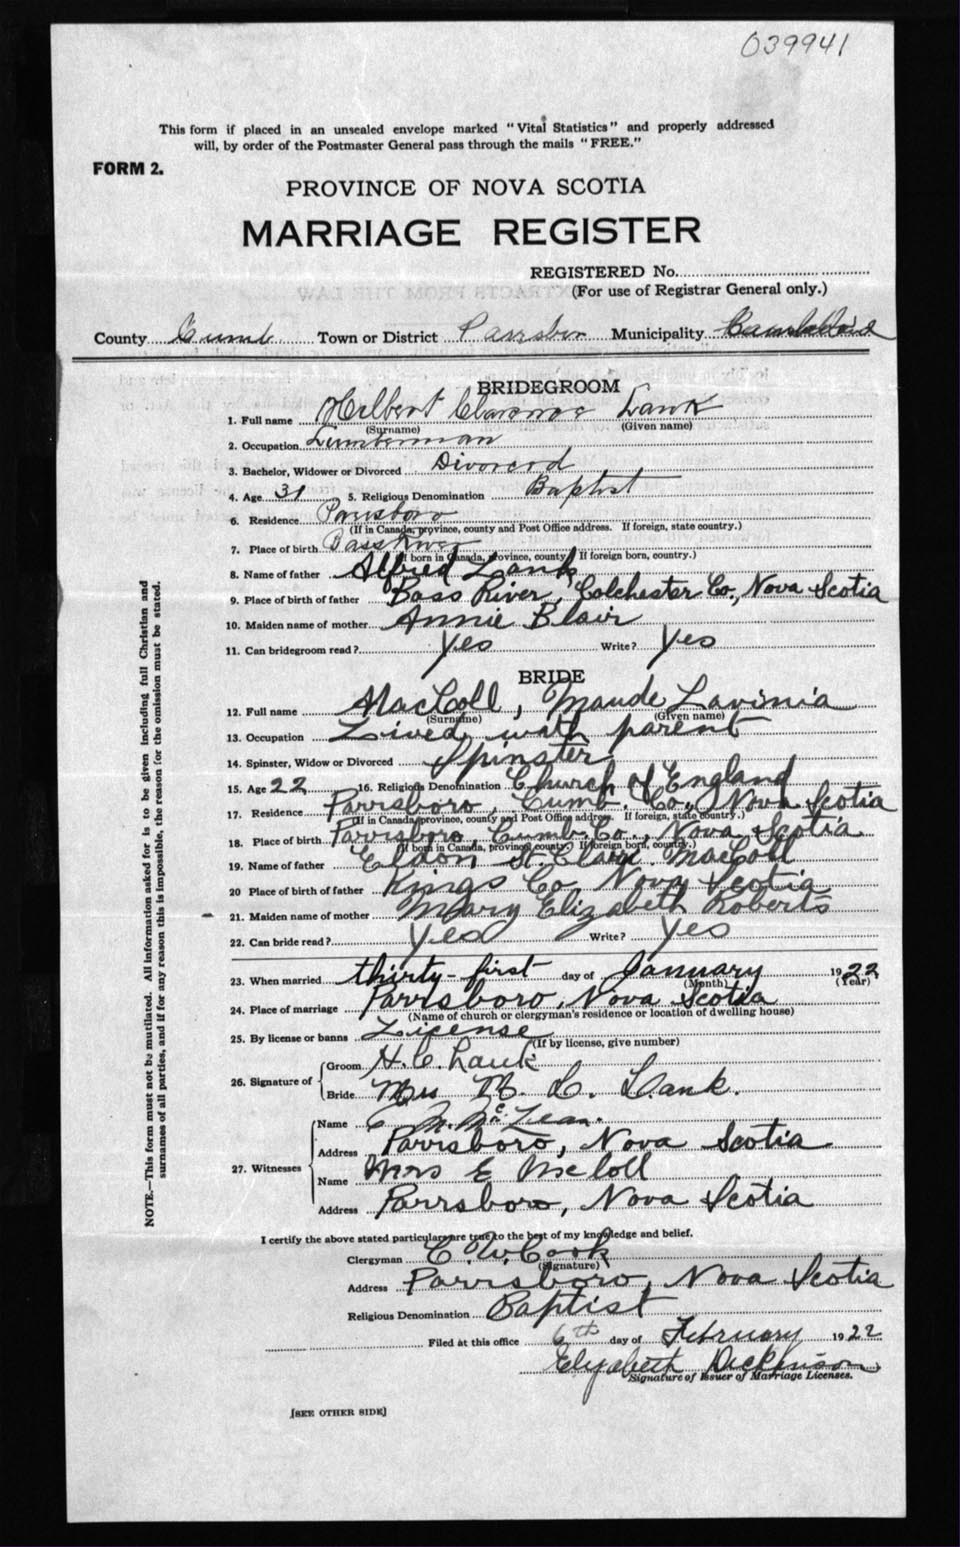 039941
This form if placed in an unsealed envelope marked "Vital Statistics" and properly addressed
will, by order of the Postmaster General pass through the mails "FREE."
FORM 2.
PROVINCE OF NOVA SCOTIA
MARRIAGE REGISTER
REGISTERED No.
(For use of Registrar General only.)
County Cumb Town or District Parrsboro Municipality
BRIDEGROOM
1. Full name Hilbert Clarence Lank
(Surname) (Given name)
2. Occupation Lumberman
3. Bachelor, Widower or Divorced Divorced
4. Age 31 5. Religious Denomination Baptist
6. Residence Parrsboro
(If in Canada, province, county and Post Office address. If foreign, state country.)
7. Place of birth Bass River
(If born in Canada, province, county. If foreign born, country.)
8. Name of father Alfred Lank
9. Place of birth of father Bass River, Colchester Co., Nova Scotia
10. Maiden name of mother Annie Blair
11. Can bridegroom read? Yes Write? Yes
BRIDE
12. Full name MacColl, Maude Lavinia
(Surname) (Given name)
13. Occupation Lived with parent
14. Spinster, Widow or Divorced Spinster
15. Age 22 16. Religious Denomination Church of England
17. Residence Parrsboro, Cumb. Co., Nova Scotia
(If in Canada, province, county and Post Office address. If foreign, state country.)
18. Place of birth Parrsboro, Cumb. Co., Nova Scotia
(If born in Canada, province, county. If foreign born, country.)
19. Name of father Eldon St. Clair MacColl
20 Place of birth of father Kings Co Nova Scotia
21. Maiden name of mother Mary Elizabeth Roberts
22. Can bride read? Yes Write? Yes
23. When married thirty-first day of January 1922
(Month) (Year)
24. Place of marriage Parrsboro, Nova Scotia
(Name of church or clergyman's residence or location of dwelling house)
25. By license or banns License
(If by license, give number)
26. Signature of
Groom H. C. Lank
Bride Mrs H. C. Lank.
27. Witnesses
Name C M. McLean.
Address Parrsboro, Nova Scotia
Name Mrs E McColl
Address Parrsboro, Nova Scotia
I certify the above stated particulars are true to the best of my knowledge and belief.
Clergyman E. W. Cook
(Signature)
Address Parrsboro, Nova Scotia
Religious Denomination Baptist
Filed at this office 6th day of February 1922
Elizabeth Dickinson
Signature of Issuer of Marriage Licenses.
[SEE OTHER SIDE]
NOTE.—This form must not be mutilated. All information asked for is to be given including full Christian and
surnames of all parties, and if for any reason this is impossible, the reason for the omission must be stated.